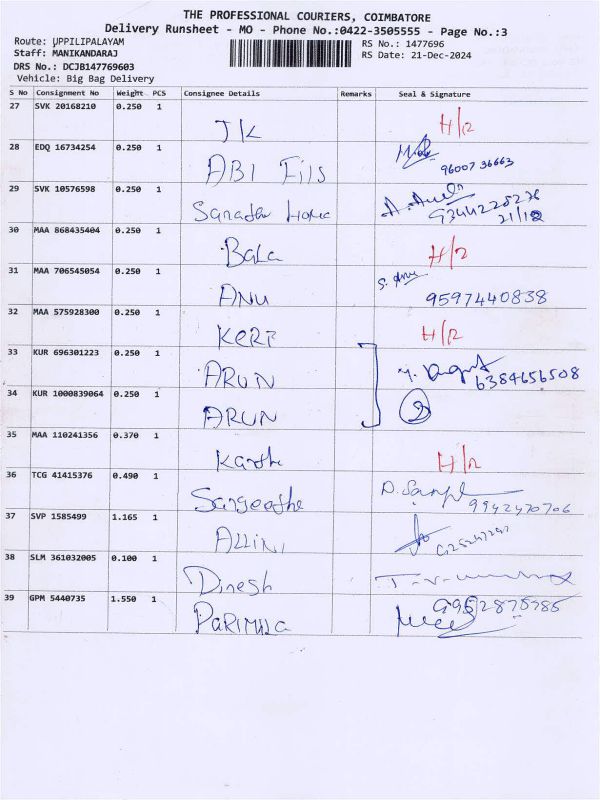 THE PROFESSIONAL COURIERS, COIMBATORE
Delivery Runsheet - MO - Phone No.:0422-3505555 - Page No.:3
Route: UPPILIPALAYAM
RS No.: 1477696
Staff: MANIKANDARAJ
RS Date: 21-Dec-2024
DRS No.: DCJB147769603
Vehicle: Big Bag Delivery
S No Consignment No Weight PCS Consignee Details Remarks Seal & Signature
27 SVK 20168210 0.250 1 JK H/R
28 EDQ 16734254 0.250 1 ABI Fils 9600736663
29 SVK 10576598 0.250 1 9344228276
21/12
30 MAA 868435404 0.250 1 Bala H/R
31 MAA 706545054 0.250 1 ANU S. Anu 9597440838
32 MAA 575928300 0.250 1 H/R
33 KUR 696301223 0.250 1 ARUN 6384656508
34 KUR 1000839064 0.250 1 ARUN 2
35 MAA 110241356 0.370 1 H/R
36 TCG 41415376 0.490 1 9942470706
37 SVP 1585499 1.165 1
38 SLM 361032005 0.100 1 Dinesh
39 GPM 5440735 1.550 1 PARIMILA 9952875785